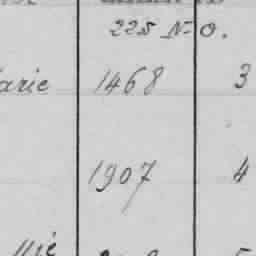 225 N-O.
arie 1468 3
1907 4